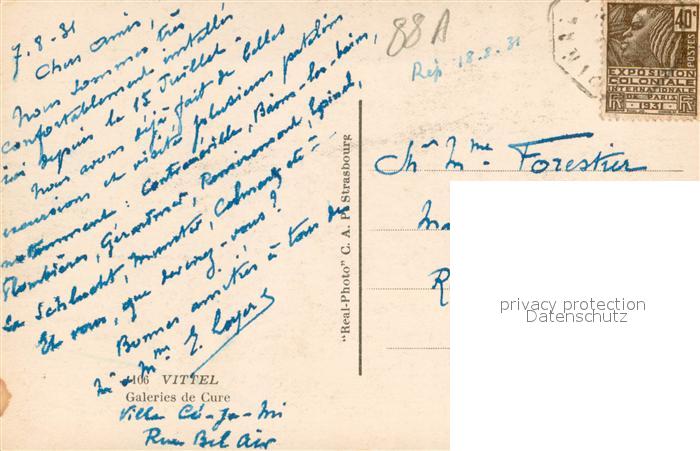 7.8.31
Chers amis,
Nous sommes très
confortablement installés
ici depuis le 15 Juillet.
Nous avons déjà fait de belles
excursions et visité plusieurs patelins
notamment : Contrexéville, Bains-les-bains,
Plombières, Gérardmer, Remiremont, Epinal,
La Schlucht, Munster, Colmar, etc
Et vous, que devenez-vous ?
Bonnes amitiés à tous deux
Mr & Mme E. Loyer
1106 VITTEL
Galeries de Cure
Villa Cé-Ja-Mi
Rue Bel Air
"Real-Photo" C. A. P. Strasbourg
88A
Rép. 18.8.31
40c
POSTES
EXPOSITION
COLONIALE
INTERNATIONALE
DE PARIS
1931
RF
RF
Mme Forestier
R
privacy protection
Datenschutz